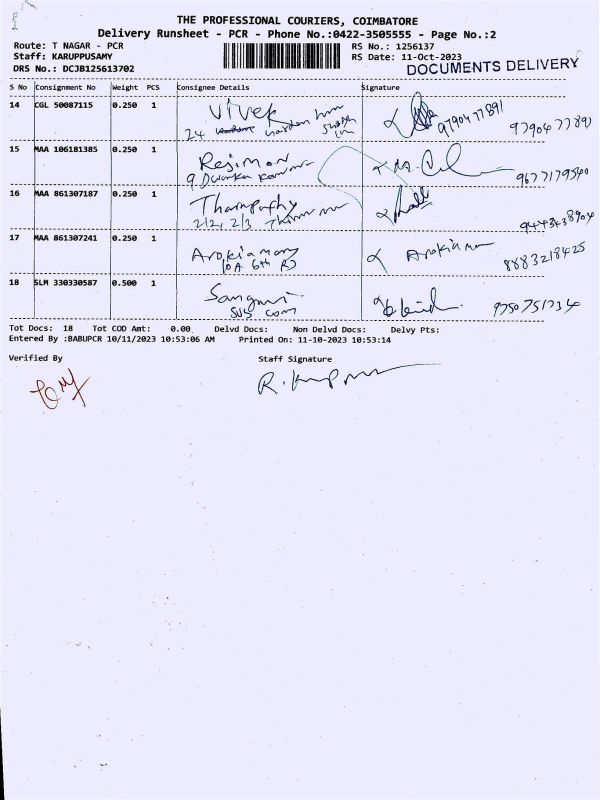 THE PROFESSIONAL COURIERS, COIMBATORE
Delivery Runsheet - PCR - Phone No.:0422-3505555 - Page No.:2
Route: T NAGAR - PCR RS No.: 1256137
Staff: KARUPPUSAMY RS Date: 11-Oct-2023
DRS No.: DCJB125613702 DOCUMENTS DELIVERY
S No Consignment No Weight PCS Consignee Details Signature
14 CGL 50087115 0.250 1 Vivek 9790477891 9790477891
24
15 MAA 106181385 0.250 1 Rejimon
9, Dwarka 9677179540
16 MAA 861307187 0.250 1 Thampathy
2/2, 2/3
17 MAA 861307241 0.250 1 Arokiamary Arokia
10A 6th RD 8883218425
18 SLM 330330587 0.500 1
SUS com 9750751734
Tot Docs: 18 Tot COD Amt: 0.00 Delvd Docs: Non Delvd Docs: Delvy Pts:
Entered By :BABUPCR 10/11/2023 10:53:06 AM Printed On: 11-10-2023 10:53:14
Verified By Staff Signature